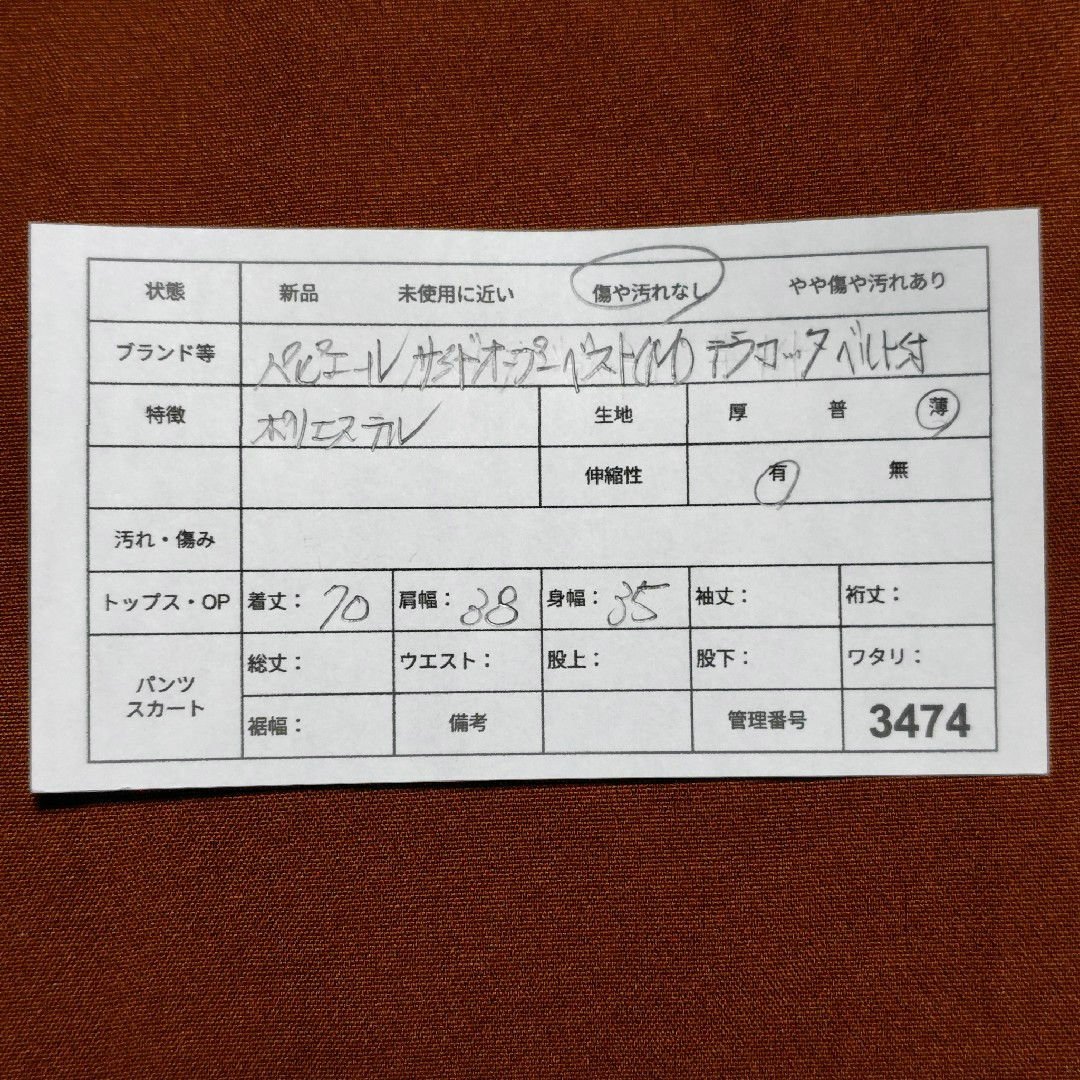 状態 新品 未使用に近い 傷や汚れなし やや傷や汚れあり
ブランド等 パピエール サイドオープンベスト(M) テラコッタ ベルト付
特徴 ポリエステル 生地 厚 普 薄
伸縮性 有 無
汚れ・傷み
トップス・OP 着丈: 70 肩幅: 38 身幅: 35 袖丈: 裄丈:
パンツ スカート 総丈: ウエスト: 股上: 股下: ワタリ:
裾幅: 備考 管理番号 3474